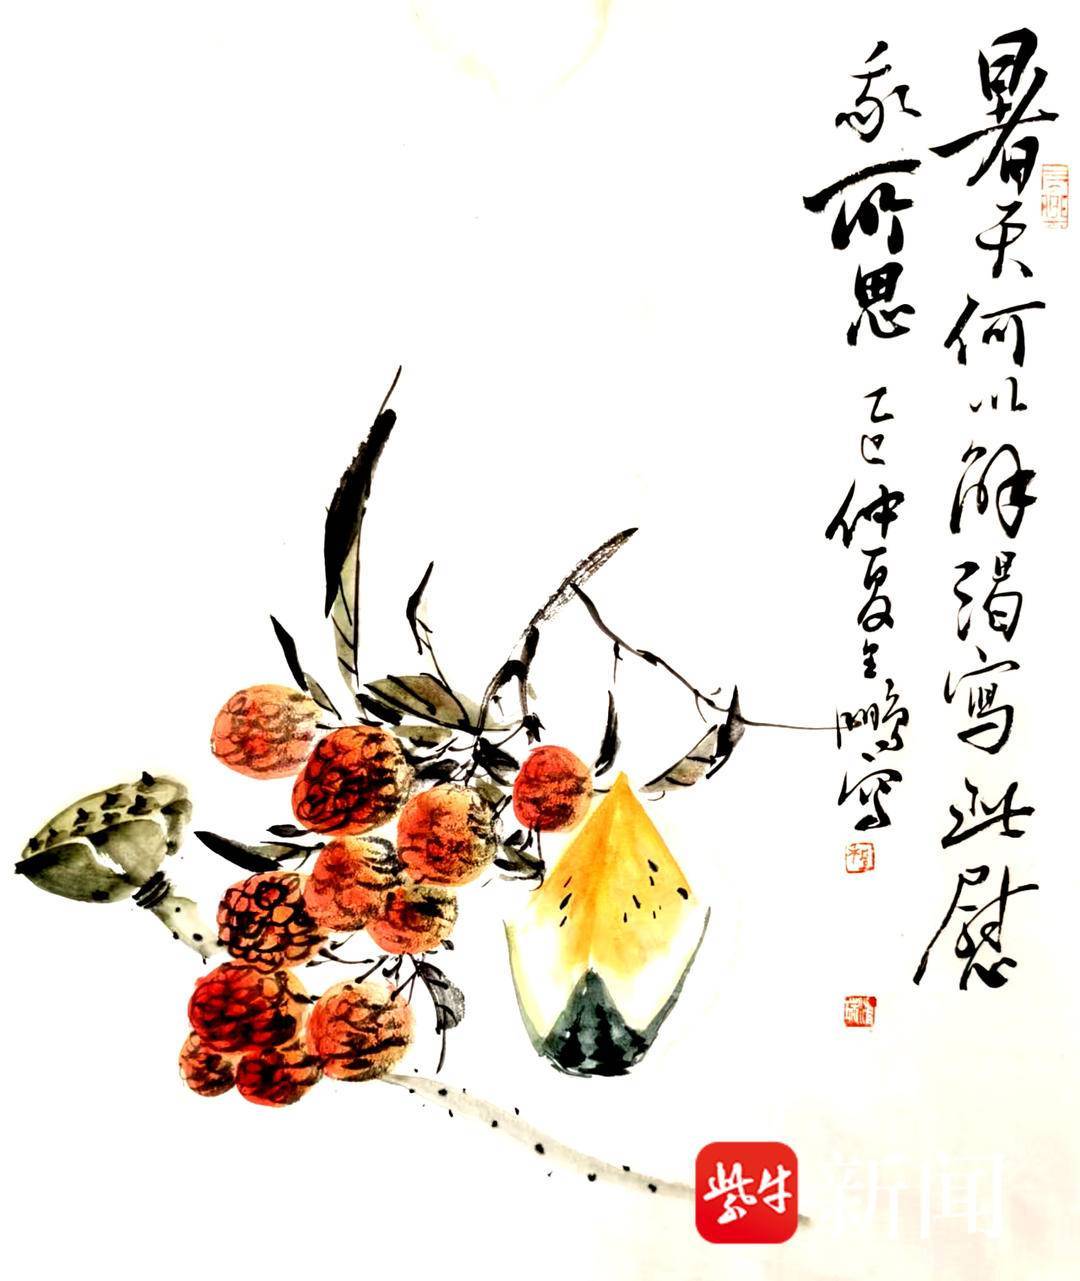 暑天何以解渴寫此慰
我所思 乙巳仲夏 鵬寫
紫牛新闻